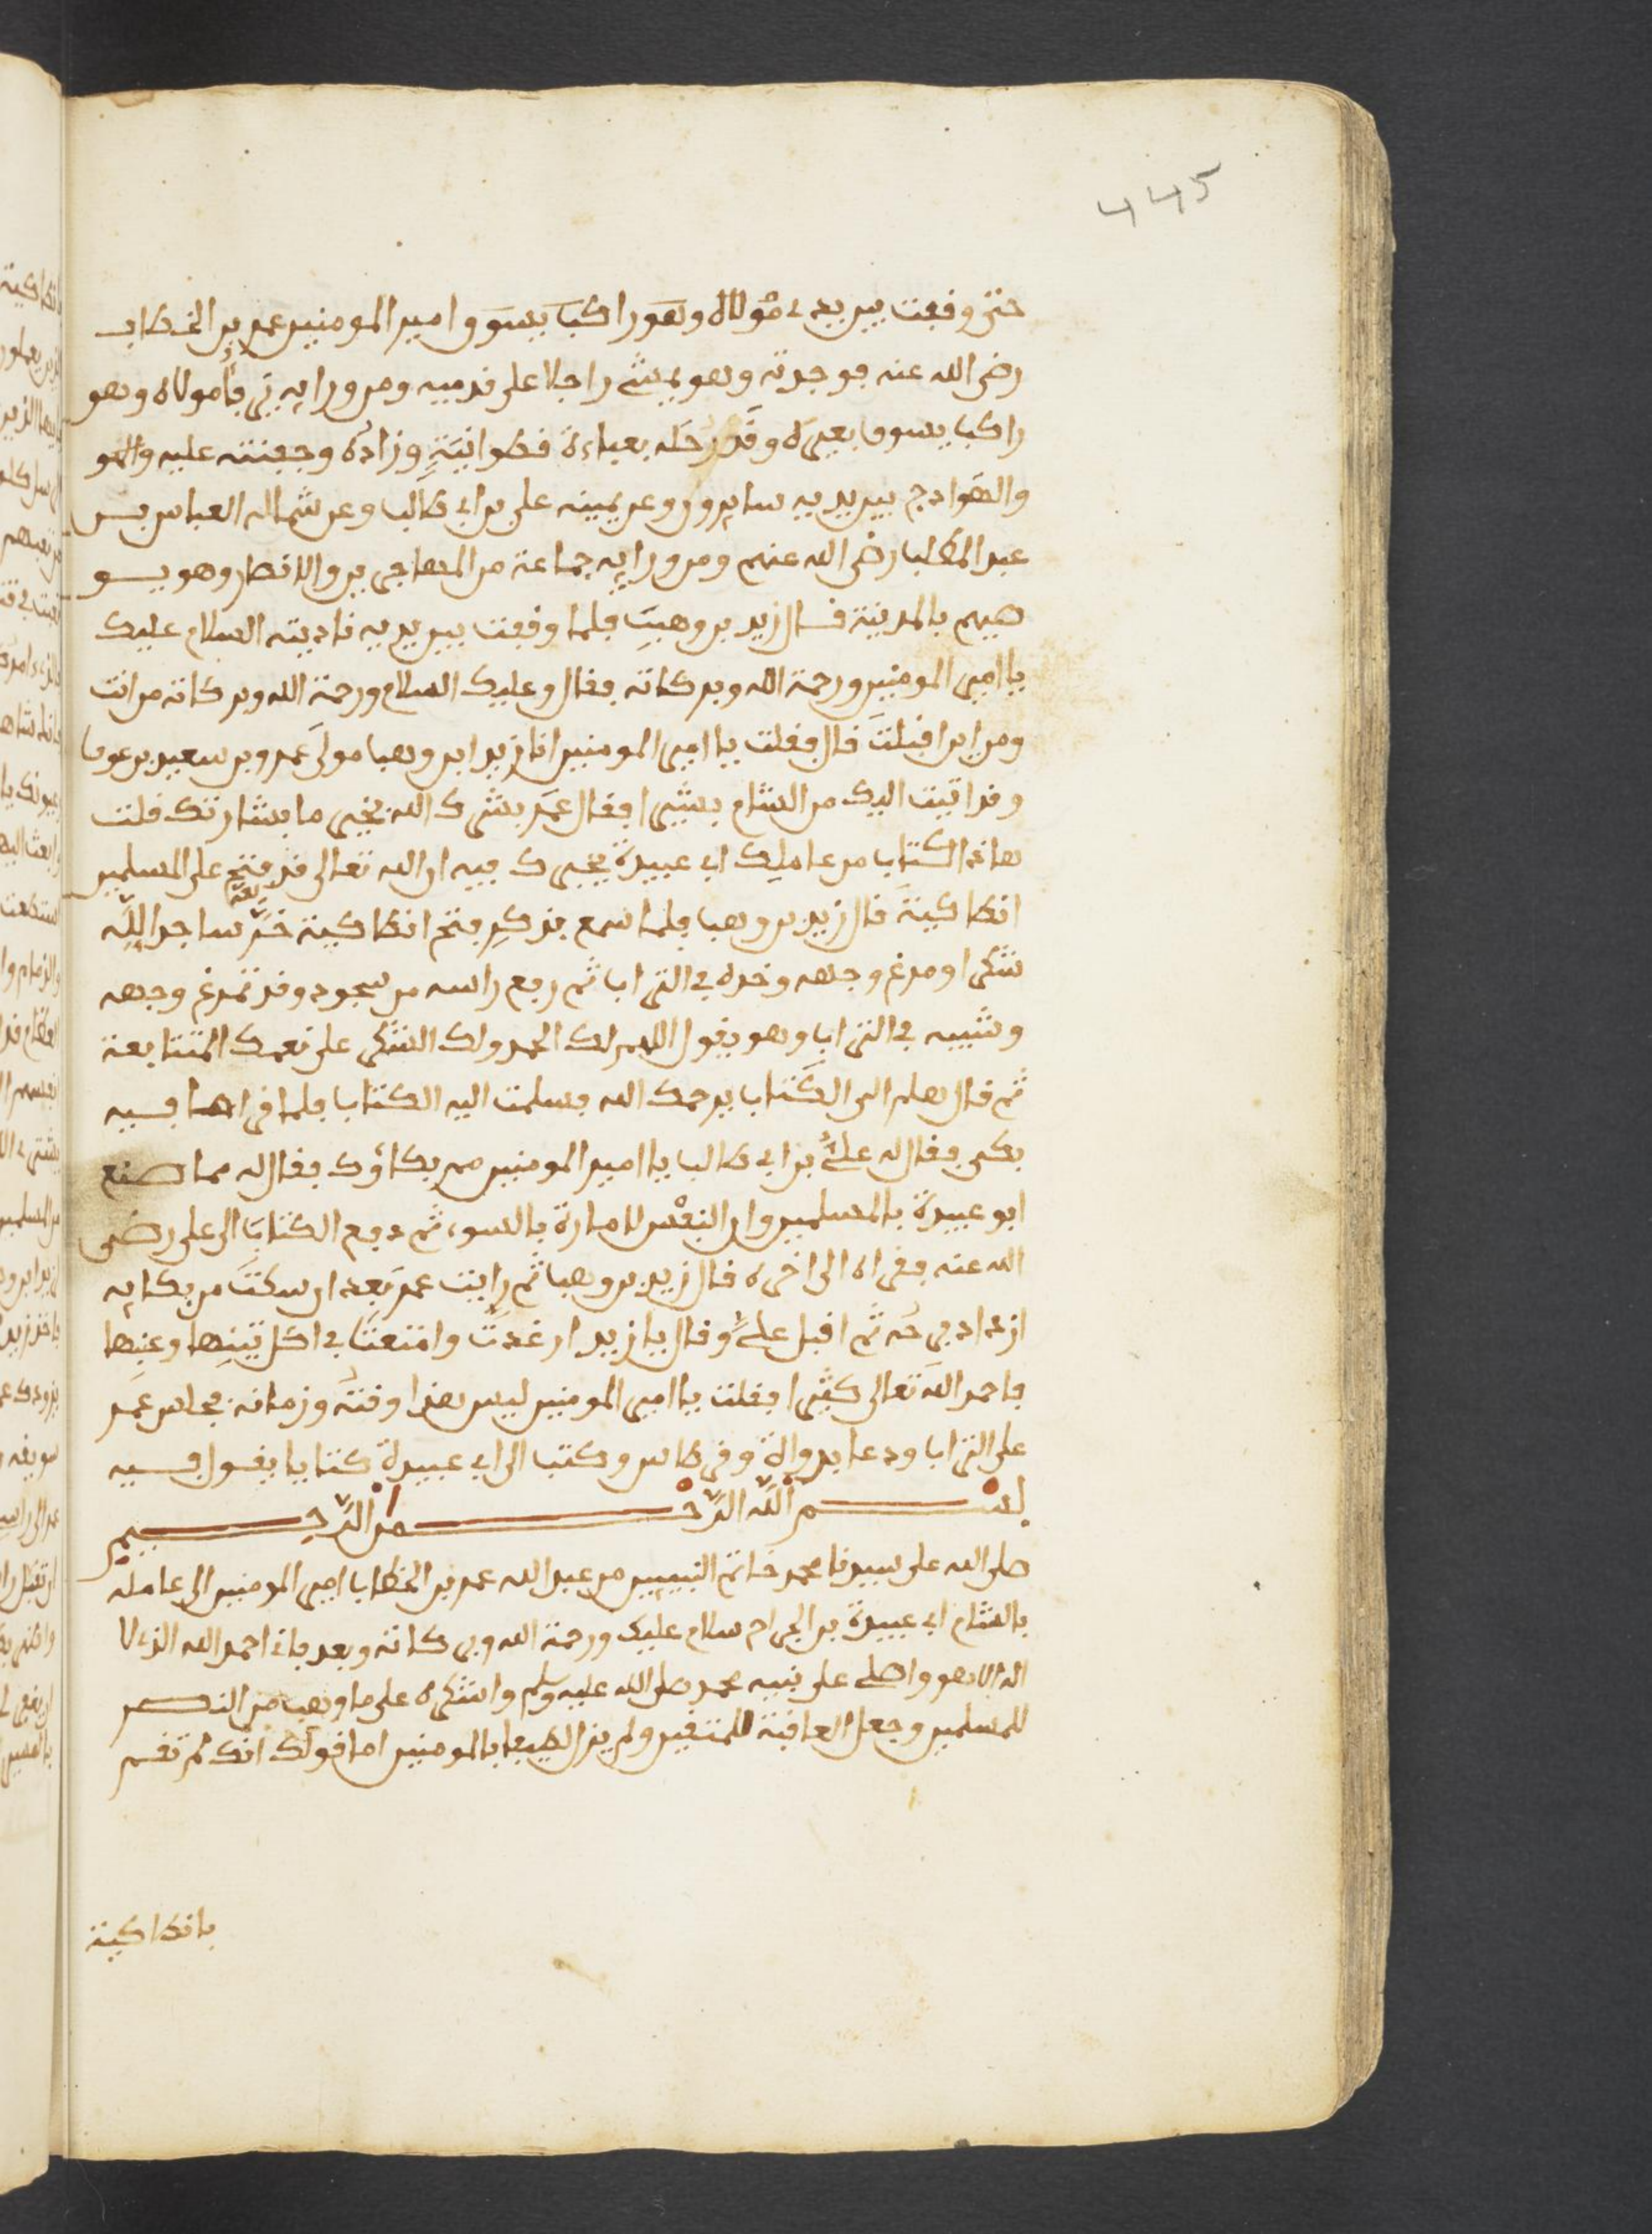 445
حتى وقفت بين يدي مولاه وهو راكبا يسوق وامير المومنين عمر بن الخطاب
رضي الله عنه فوجدته وهو يمشي راجلا على قدميه ومن ورايه مولاه وهو
راكبا يسوق بعيره وقد رحله بعباءة قطوانية وزاده وجفنته عليه
والهوادج بين يديه سايرون وعن يمينه علي بن ابي طالب وعن شماله العباس بن
عبد المطلب رضي الله عنهم ومن ورايه جماعة من المهاجرين والانصار وهو يو
صيهم بالمدينة قال زيد بن وهب فلما وقفت بين يديه ناديته السلام عليك
يا امير المومنين ورحمة الله وبركاته فقال وعليك السلام ورحمة الله وبركاته من انت
ومن اين اقبلت قال فقلت يا امير المومنين انا زيد ابن وهب مولى عمرو بن سعيد بن عوف
وقد اتيت اليك من الشام بشيرا فقال عمر بشرك الله بخير ما بشارتك قلت
هاذا الكتاب من عاملك ابي عبيدة يخبرك فيه ان الله تعالى قد فتح على المسلمين
انطاكية قال زيد بن وهب فلما سمع بذكر فتح انطاكية خر ساجدا لله
شكرا ومرغ وجهه وخده في التراب ثم رفع راسه من سجوده وقد تمرغ وجهه
وشيبه في التراب وهو يقول اللهم لك الحمد ولك الشكر على نعمك المتتابعة
ثم قال هلم الى الكتاب يرحمك الله فسلمت اليه الكتاب فلما قرا ما فيه
بكى فقال له علي بن ابي طالب يا امير المومنين مم بكاؤك فقال له مما صنع
ابو عبيدة بالمسلمين وان النفس لامارة بالسوء ثم دفع الكتاب الى علي رضي
الله عنه فقراه الى اخره قال زيد بن وهب ثم رايت عمر بعد ان سكت من بكايه
ازداد فرحه ثم اقبل علي وقال يا زيد ان غدت وامتعت في اكل تينها وعنبها
فاحمد الله تعالى كثيرا فقلت يا امير المومنين ليس هذا وقته وزمانه فجلس عمر
على التراب ودعا بدواة وقرطاس وكتب الى ابي عبيدة كتابا يقول فيه
بسم الله الرحمن الرحيم
صلى الله على سيدنا محمد خاتم النبيين من عبد الله عمر بن الخطاب امير المومنين الى عامله
بالشام ابي عبيدة بن الجراح سلام عليك ورحمة الله وبركاته وبعد فاني احمد الله الذي لا
اله الا هو واصلي على نبيه محمد صلى الله عليه وسلم واشكره على ما وهب من النصر
للمسلمين وجعل العاقبة للمتقين ولم يزل لطيفا بالمومنين اما قولك انك لم تقم
بانطاكية